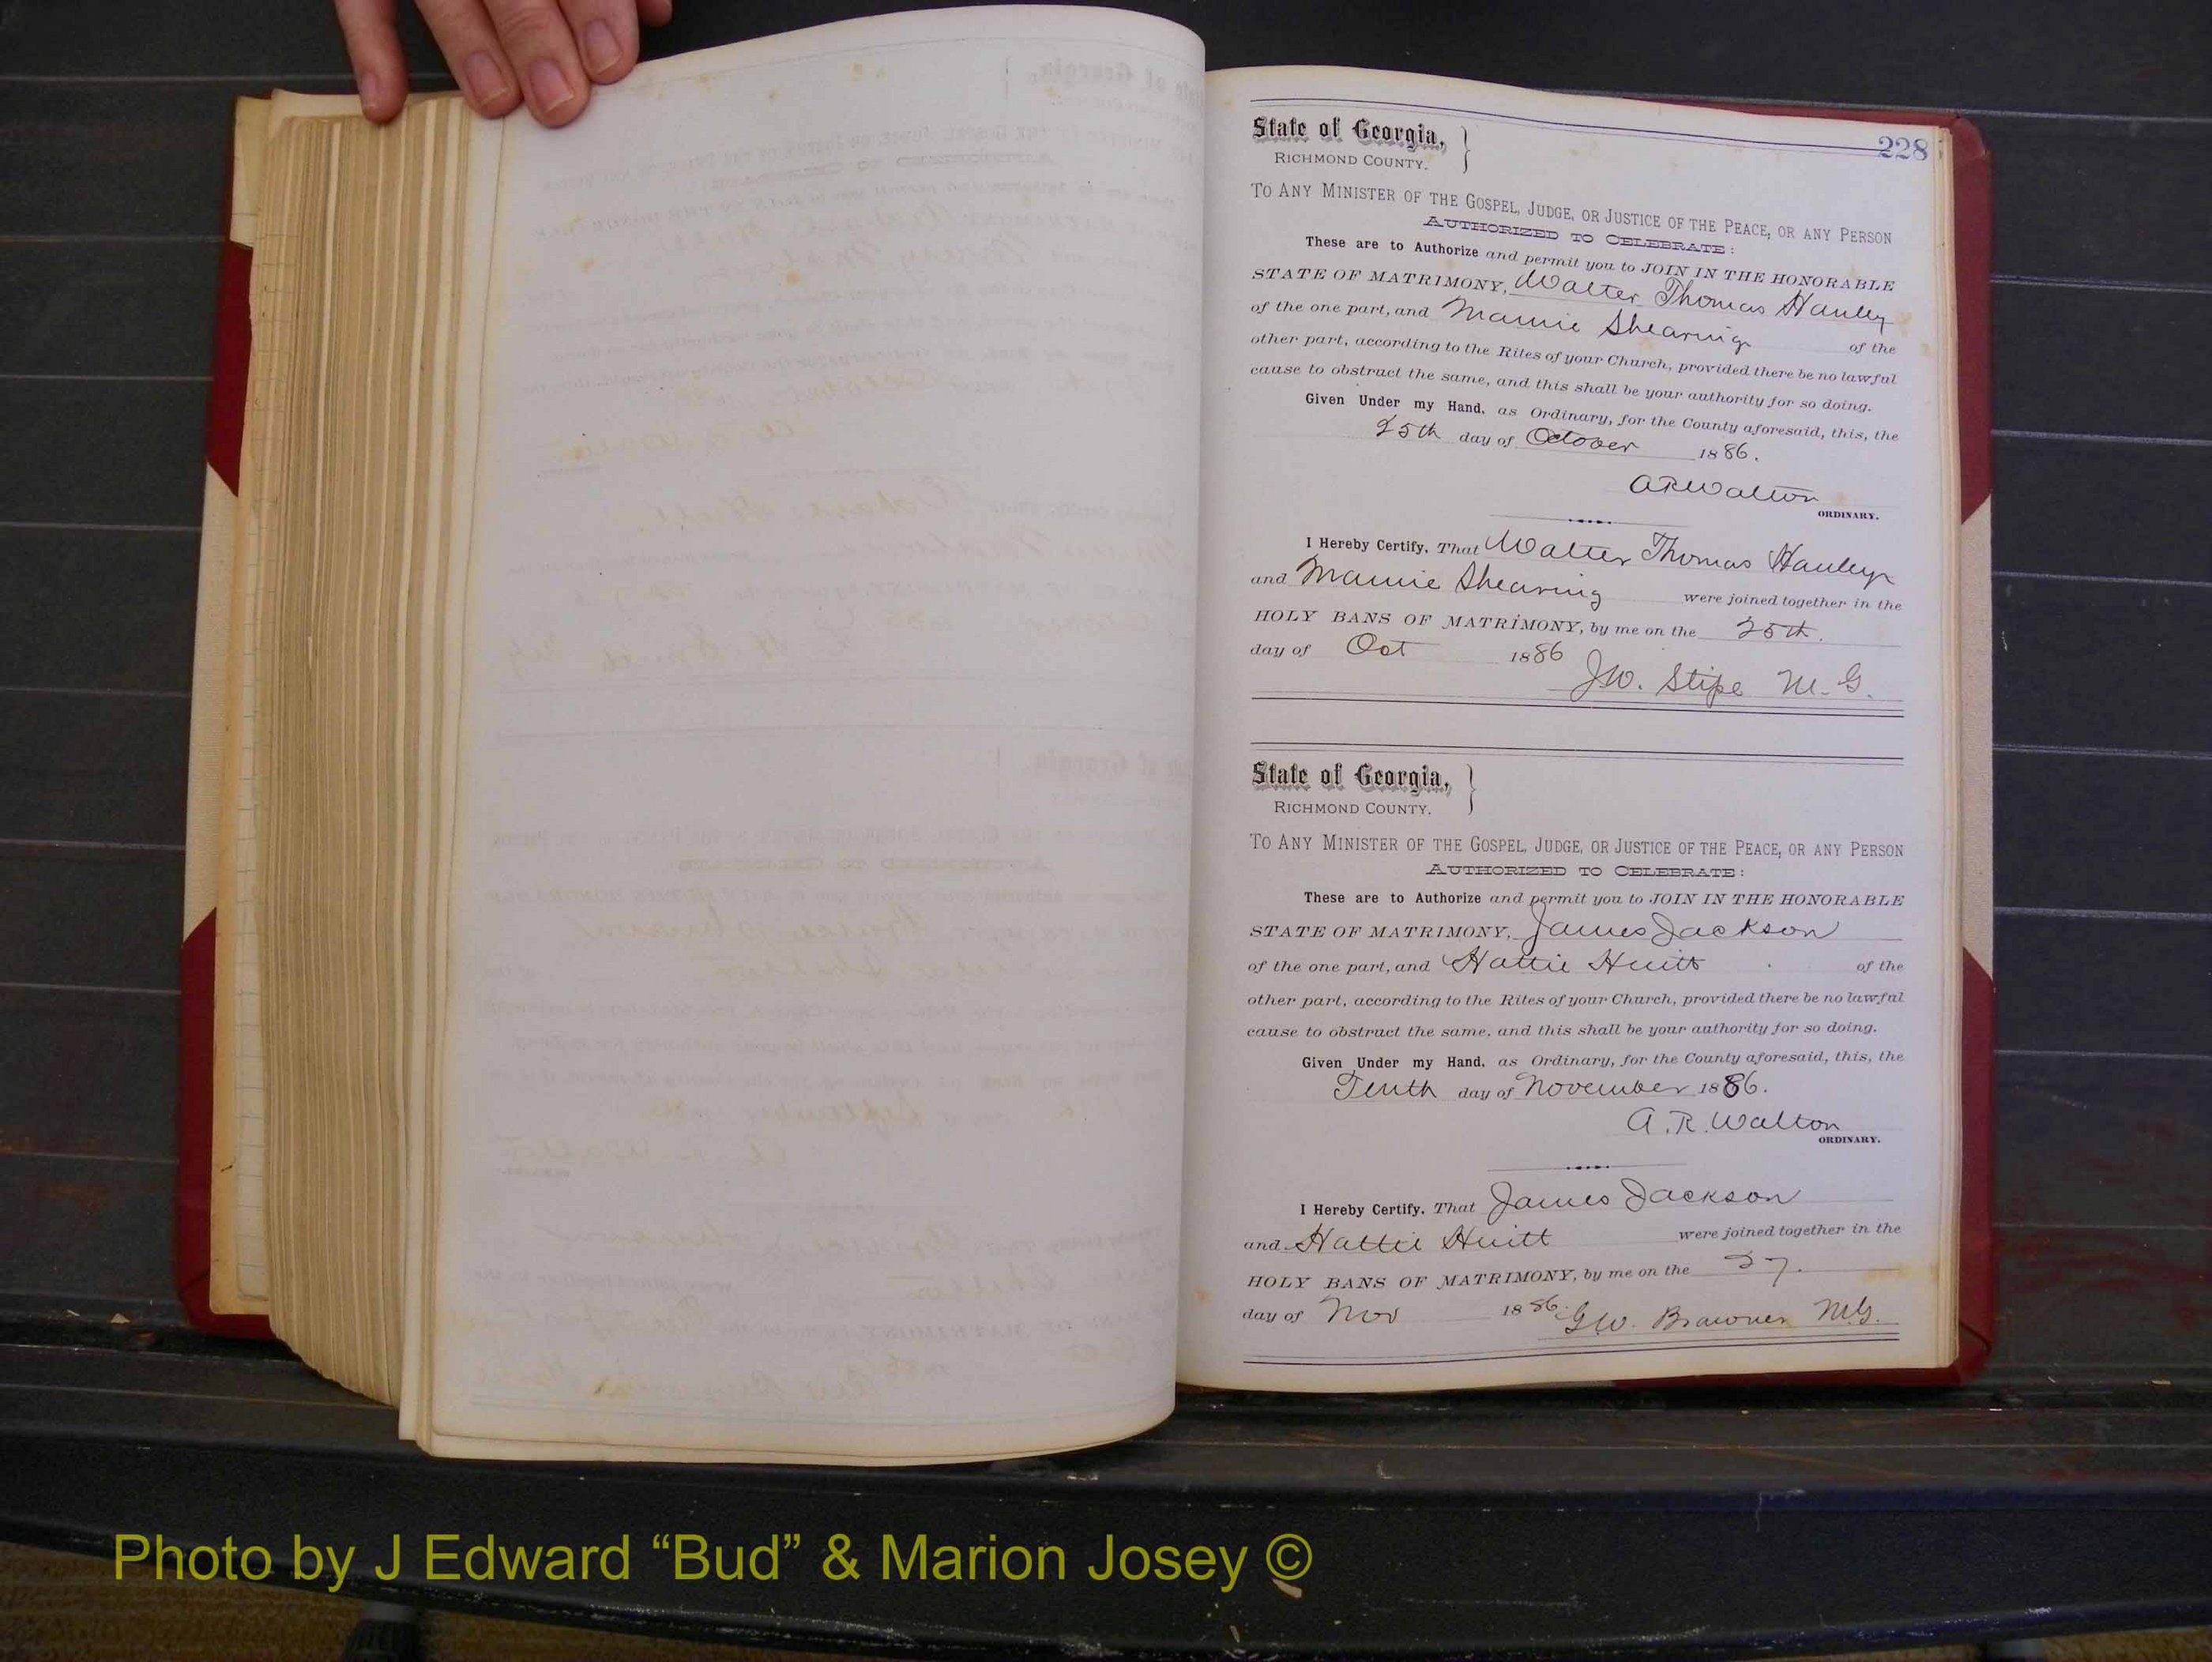 228
State of Georgia,
RICHMOND COUNTY.
TO ANY MINISTER OF THE GOSPEL, JUDGE, OR JUSTICE OF THE PEACE, OR ANY PERSON
AUTHORIZED TO CELEBRATE:
These are to Authorize and permit you to JOIN IN THE HONORABLE
STATE OF MATRIMONY, Walter Thomas Hanley
of the one part, and Mamie Shearing of the
other part, according to the Rites of your Church, provided there be no lawful
cause to obstruct the same, and this shall be your authority for so doing.
Given Under my Hand, as Ordinary, for the County aforesaid, this, the
25th day of October 1886.
A R Walton
ORDINARY.
I Hereby Certify, That Walter Thomas Hanley
and Mamie Shearing were joined together in the
HOLY BANS OF MATRIMONY, by me on the 25th.
day of Oct 1886
J.W. Stipe M.G.
State of Georgia,
RICHMOND COUNTY.
TO ANY MINISTER OF THE GOSPEL, JUDGE, OR JUSTICE OF THE PEACE, OR ANY PERSON
AUTHORIZED TO CELEBRATE:
These are to Authorize and permit you to JOIN IN THE HONORABLE
STATE OF MATRIMONY, James Jackson
of the one part, and Hattie Huitt of the
other part, according to the Rites of your Church, provided there be no lawful
cause to obstruct the same, and this shall be your authority for so doing.
Given Under my Hand, as Ordinary, for the County aforesaid, this, the
Tenth day of November 1886.
A. R. Walton
ORDINARY.
I Hereby Certify, That James Jackson
and Hattie Huitt were joined together in the
HOLY BANS OF MATRIMONY, by me on the 27.
day of Nov 1886. GW. Brawner M.G.
Photo by J Edward “Bud” & Marion Josey ©